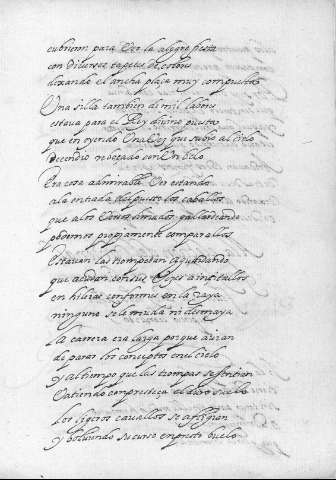 cubrieron para Ver la alegre fiesta
con diversos tapetes de colores
dexando el ancha plaça muy compuesta
Una silla tambien de mil labores
estava para el Rey divino puesta
que en oyendo Una Voz que subio al cielo
decendio rebocado con Un belo
Era cosa admirable Ver estando
a la entrada del puesto los caballos
que a los
podemos propiamente comparallos
Estavan las trompetas ayudando
que acudan con sus Vozes a incitallos
en hileras conformes en la raya
ninguno se le muda ni desmaya
La carrera era larga porque avian
de parar los conceptos en el cielo
y al tiempo que las trompas se sentian
batiendo con presteza el duro suelo
los ligeros cavallos se afligian
y bolviendo su curso en presto buelo